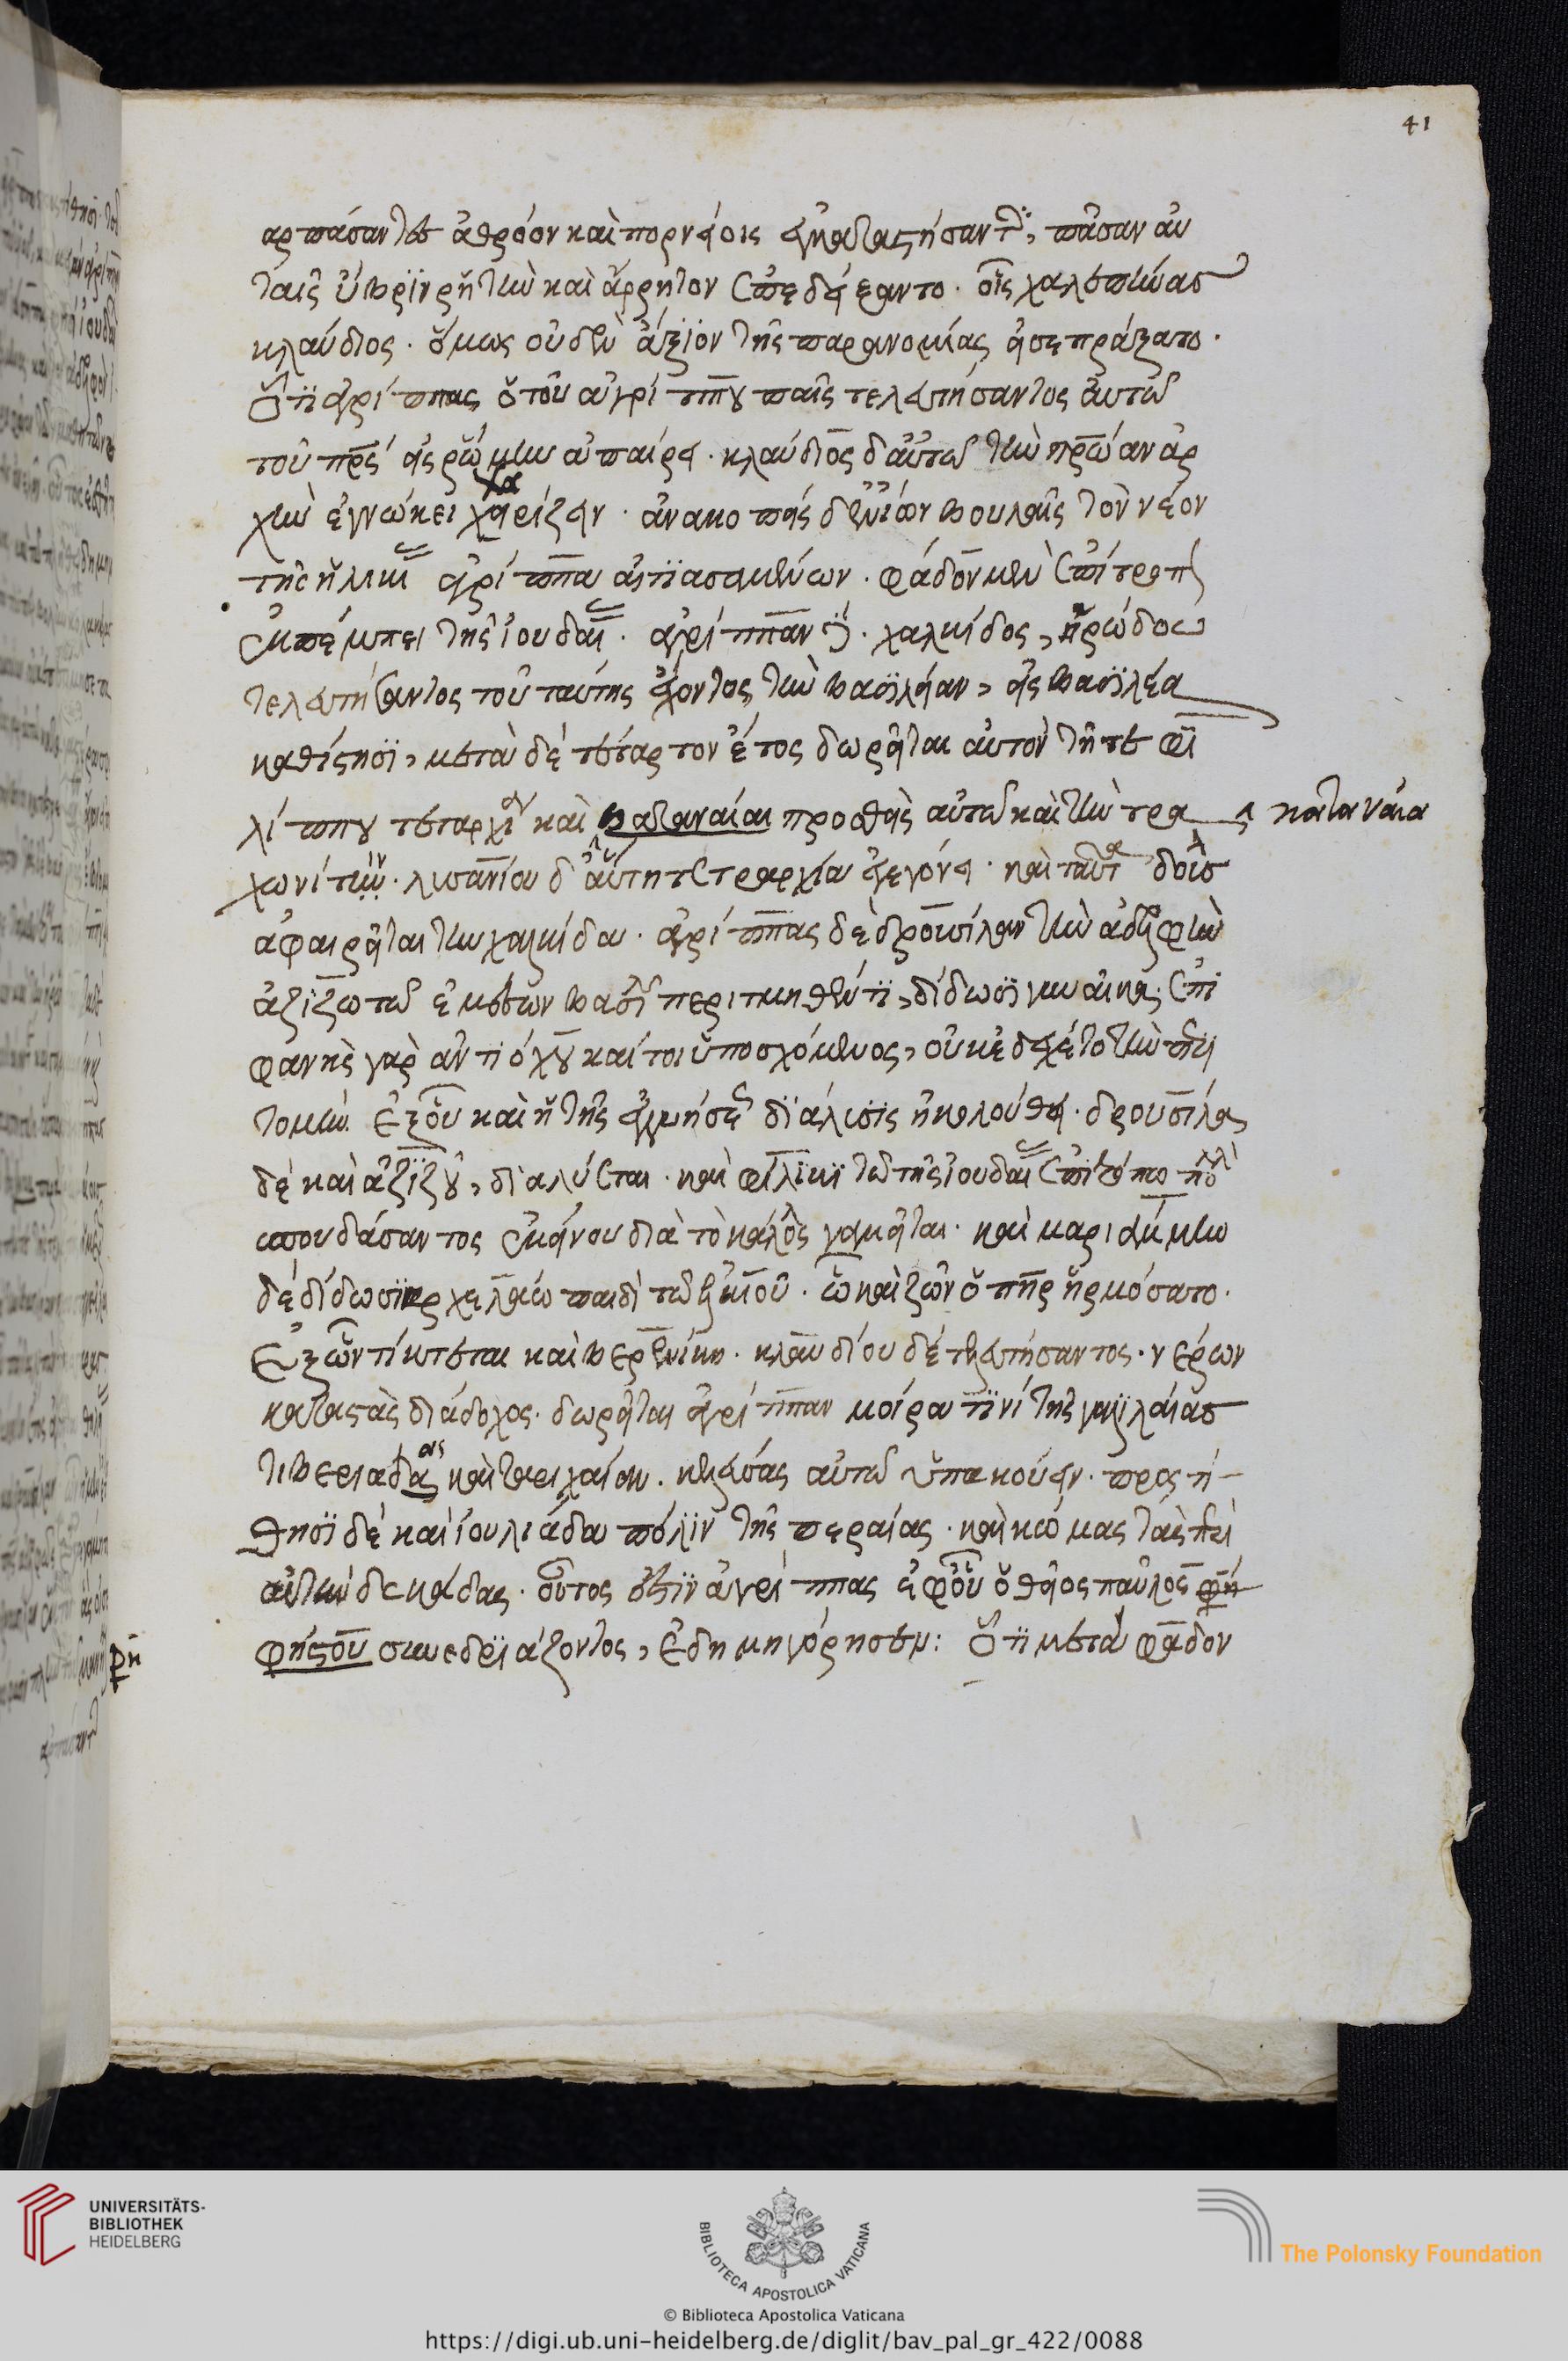 41
ἁρπάσαντες ἀθρόον καὶ πορνείοις ἐγκαταστήσαντες, πᾶσαν αὐ
ταῖς ὕβριν ῥητὴν καὶ ἄρρητον ἐπεδείξαντο. οἷς χαλεπήνας
κλαύδιος. ὅμως οὐδὲν ἄξιον τῆς παρανομίας εἰσεπράξατο.
Ὅτι ἀγρίππας ὁ τοῦ ἀγρίππου παῖς τελευτήσαντος αὐτῶ
τοῦ πρς εἰς ῥώμην ἀπαίρει. κλαύδιος δ' αὐτῶ τὴν πρώαν ἀρ
χὴν ἐγνώκει χαρίζειν. ἀνακοπεὶς δ' ἐνίων βουλαῖς τὸν νέον
τῆς ἡλικίας ἀγρίππα αἰτιασαμένων. φάδον μὲν ἐπίτροπον
ἐκπέμπει τῆς ἰουδαίας. ἀγρίππαν δὲ. χαλκίδος, ἡρώδου
τελευτήσαντος τοῦ ταύτης ἔχοντος τὴν βασιλείαν, εἰς βασιλέα
καθίστησι, μετὰ δὲ τέταρτον ἔτος δωρεῖται αὐτὸν τῆ τε φι
λίππου τεταρχία καὶ βαταναίαι προσθεὶς αὐτῶ καὶ τὴν τρα
καταναία
χωνίτιν. λισανίου δ' αὕτη τετραρχία ἐγεγόνει. καὶ ταῦτα δοὺς
ἀφαιρεῖται τὴν χαλκίδα. ἀγρίππας δὲ δρουσίλαν τὴν ἀδελφὴν
ἀζίζω τῶ ἐμεσῶν βασιλεῖ περιτμηθέντι, δίδωσι γυναῖκα. ἐπι
φανὴς γὰρ ἀντιόχου καίτοι ὑποσχόμενος, οὐκ ἐδέχετο τὴν περι
τομήν. ἐξ οὗ καὶ ἡ τῆς ἐγγυήσεως διάλισις ἠκολούθει. δρουσίλας
δὲ καὶ ἀζίζου, διαλύεται. καὶ φίλικι τῶ τῆς ἰουδαίας ἐπιτρόπω πολλὰ
σπουδάσαντος ἐκείνου διὰ τὸ κάλλος γαμεῖται. καὶ μαριάμμην
δὲ δίδωσιν ἀρχελάω παιδὶ τοῦ ἐλκίου. ὧ καὶ ζῶν ὁ πηρ ἡρμόσατο.
Ἐξ ὧν τίκτεται καὶ βερενίκη. κλαυδίου δὲ τελευτήσαντος. νέρων
καταστὰς διάδοχος. δωρεῖται ἀγρίππαν μοίρα τινὶ τῆς γαλιλαίας
τιβεριάδας καὶ ταριχαίαν. κελεύσας αὐτῶ ὑπακούειν. προστί
θησι δὲ καὶ ἰουλιάδα πόλιν τῆς περαίας. καὶ κώμας τὰς περὶ
αὐτὴν δεκάδας. οὗτος ἐστὶν ἀγρίππας ἐφ' οὗ ὁ θεῖος παῦλος
φήστου συνεδριάζοντος, ἐδημηγόρησεν: Ὅτι μετὰ φάδον
UNIVERSITÄTS-
BIBLIOTHEK
HEIDELBERG
BIBLIOTECA APOSTOLICA VATICANA
The Polonsky Foundation
© Biblioteca Apostolica Vaticana
https://digi.ub.uni-heidelberg.de/diglit/bav_pal_gr_422/0088